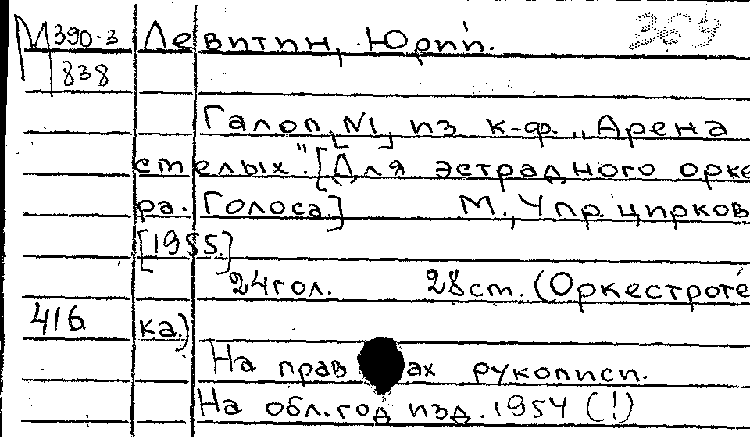 М 390-3 Левитин, Юрий. 369
838
Галоп [№1] из к-ф. „Арена
смелых". [Для эстрадного орке
ра. Голоса.] М., Упр. цирков
[1955.]
24 гол. 28 ст. (Оркестроте
416 ка.)
На прав ах рукописи.
На обл. год изд. 1954 (!)